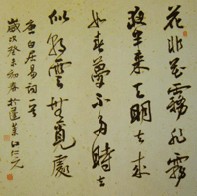 花非花霧非霧
夜半来天明去来
如春夢不多時去
似朝雲無覓處
唐白居易詞一首
歲次癸未初春於蓬萊